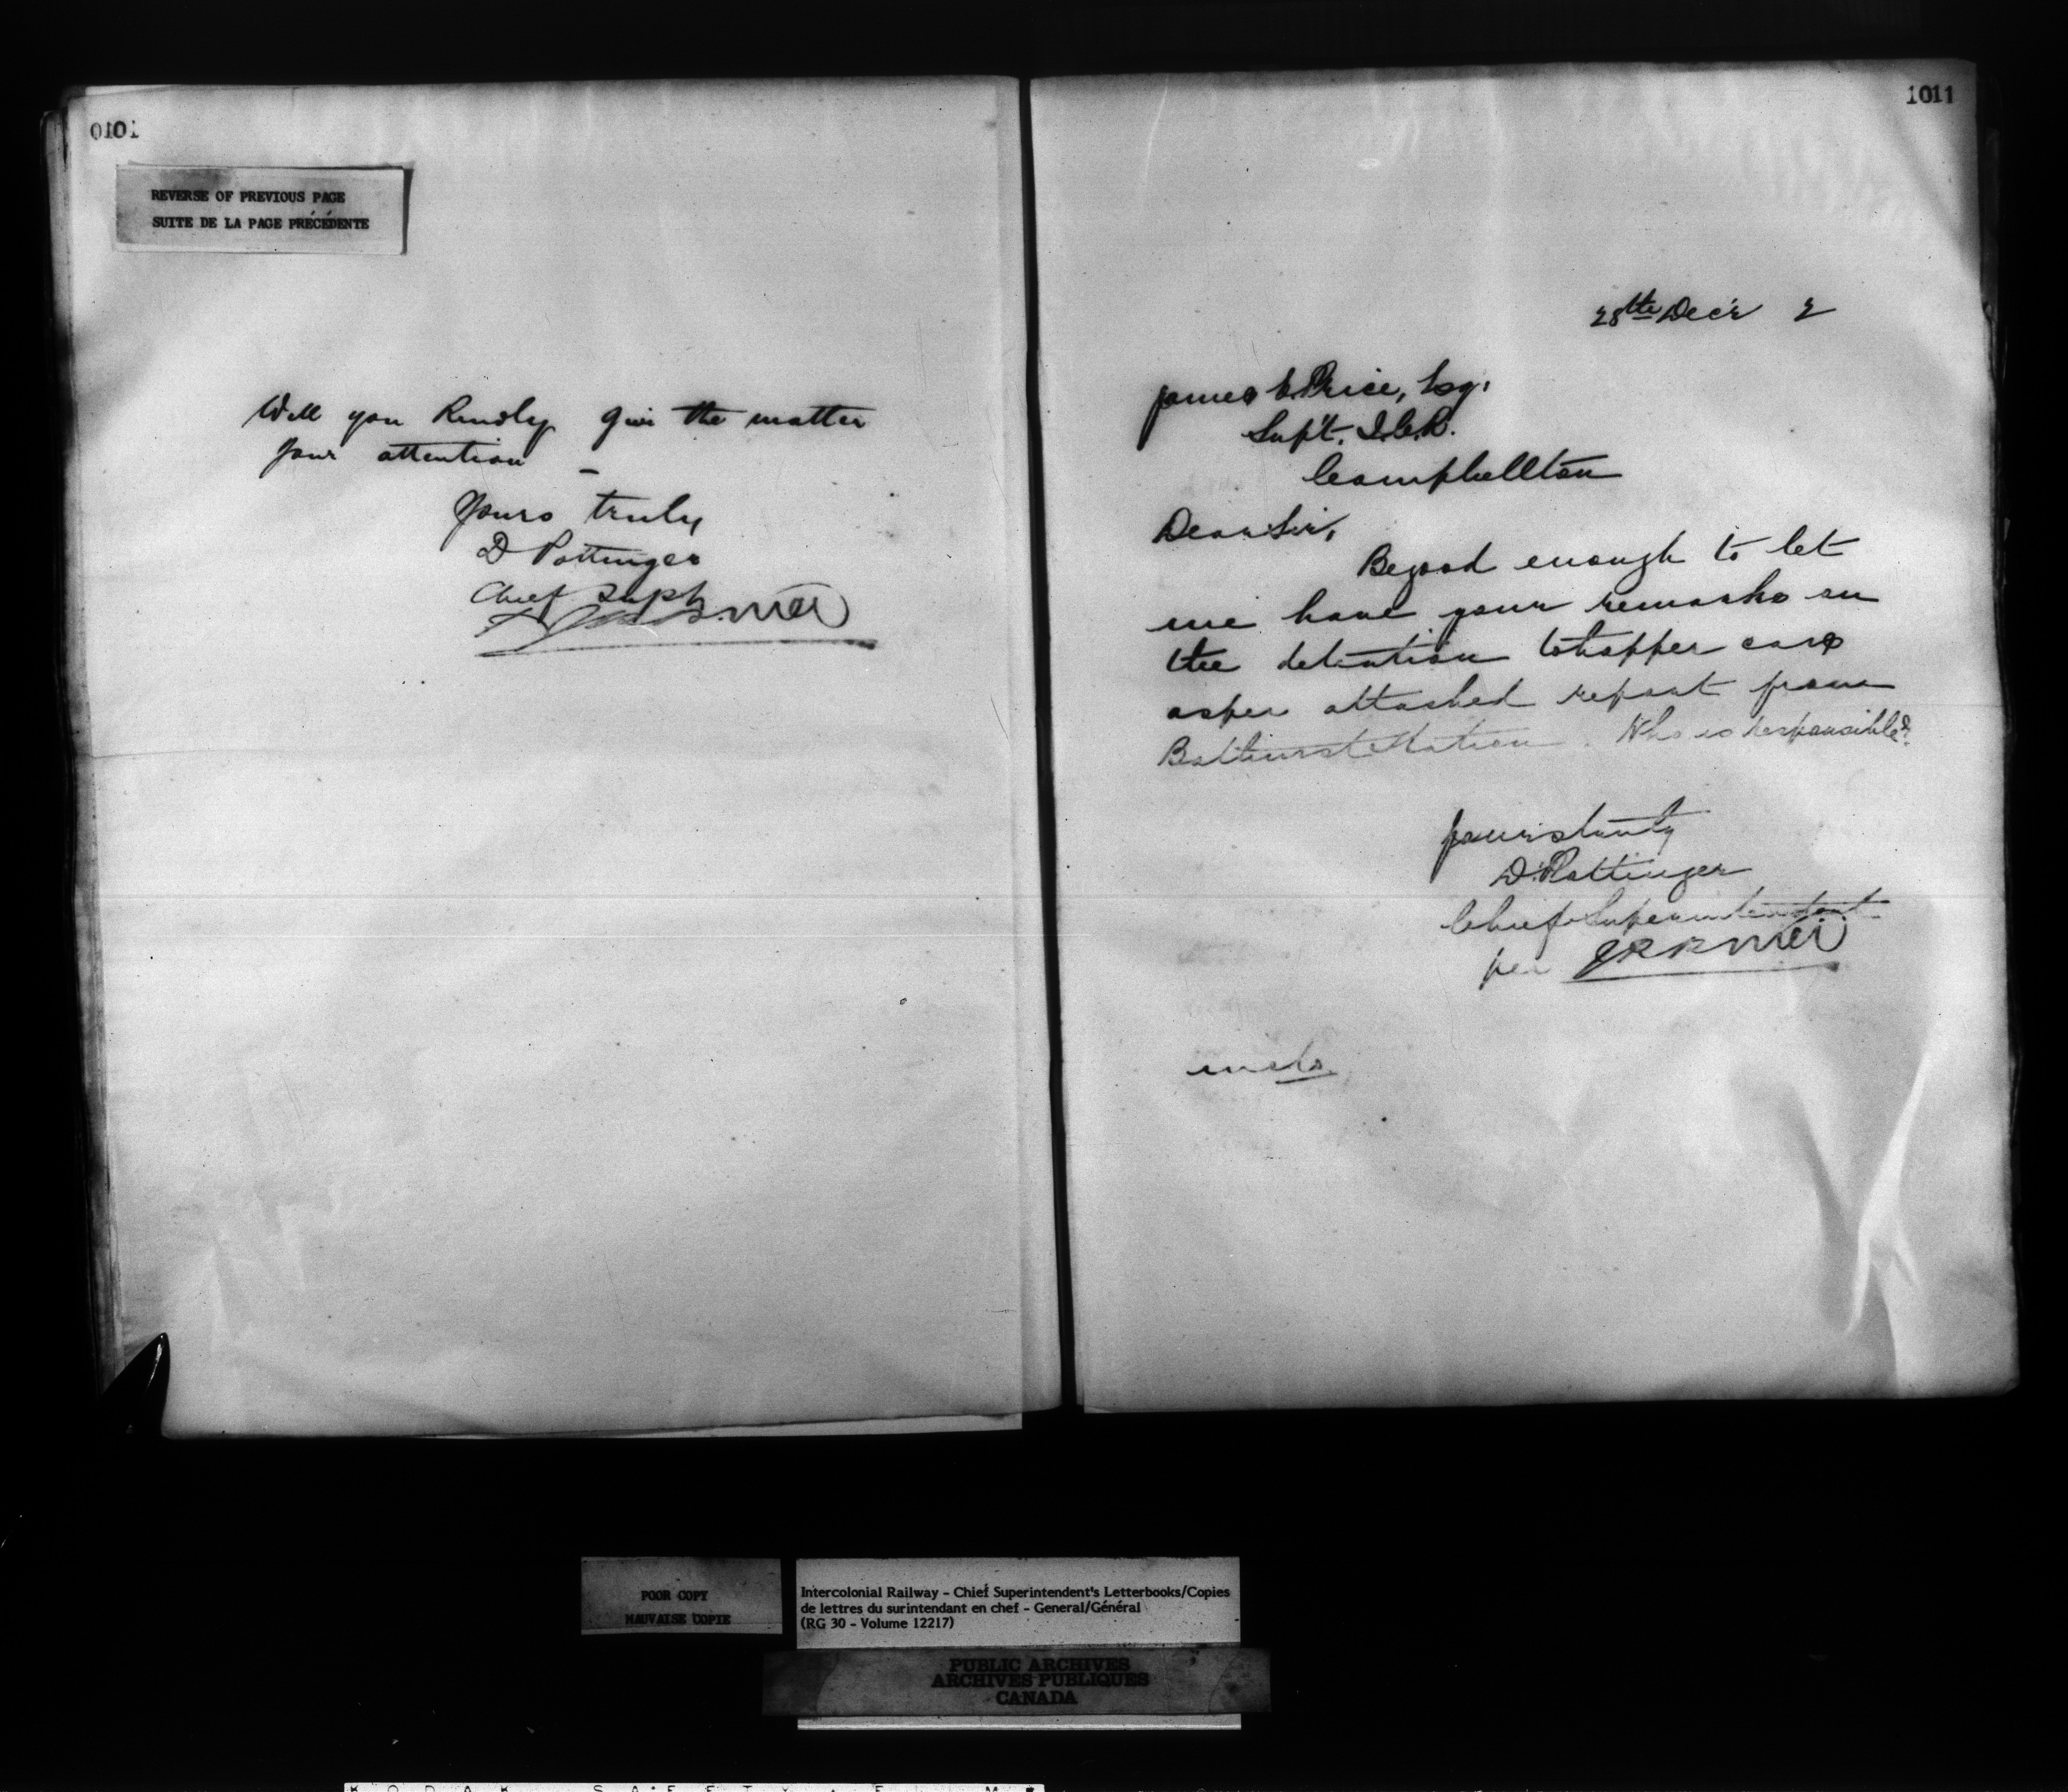 0101
REVERSE OF PREVIOUS PAGE
SUITE DE LA PAGE PRÉCÉDENTE
Will you Kindly give the matter
your attention –
Yours truly
D Pottinger
Chief Supt
1011
28th Dec'r 2
James E. Price, Esq.
Sup't. I.C.R.
Campbellton
Dear Sir,
Be good enough to let
me have your remarks on
the detention to hopper cars
as per attached report from
Bathurst Station. Who is responsible?
Yours truly
D. Pottinger
Chief Superintendent
per
encls.
POOR COPY
MAUVAISE COPIE
Intercolonial Railway – Chief Superintendent's Letterbooks/Copies
de lettres du surintendant en chef – General/Général
(RG 30 – Volume 12217)
PUBLIC ARCHIVES
ARCHIVES PUBLIQUES
CANADA